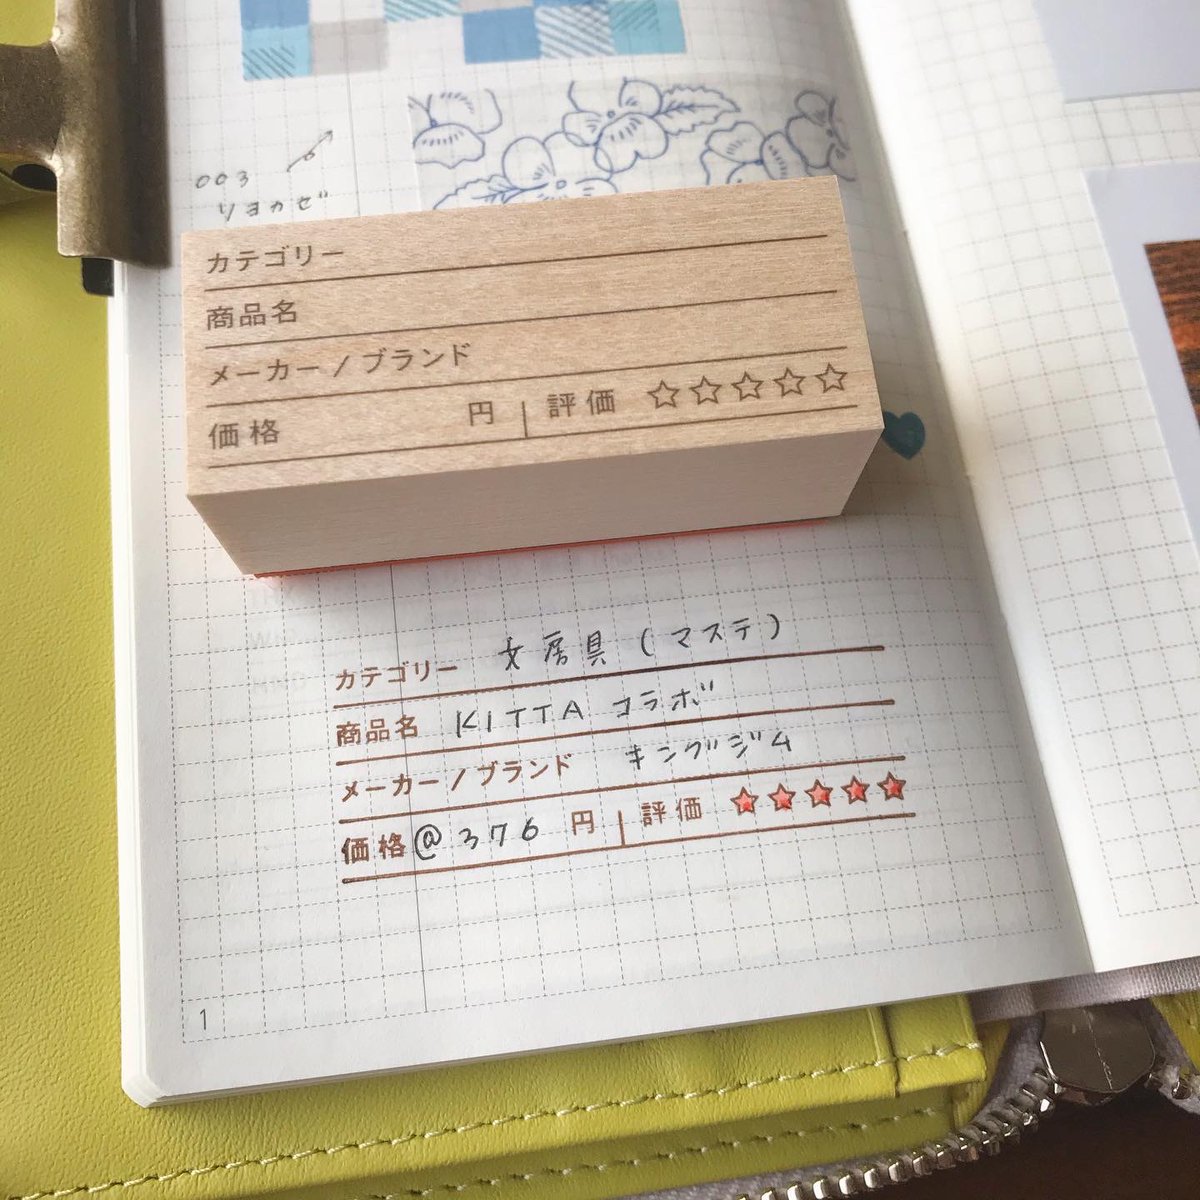 003
リヨカゼ
カテゴリー
商品名
メーカー / ブランド
価格 円 | 評価 ☆☆☆☆☆
カテゴリー 文房具(マステ)
商品名 KITTA コラボ
メーカー / ブランド キングジム
価格 @376 円 | 評価 ★★★★★
1